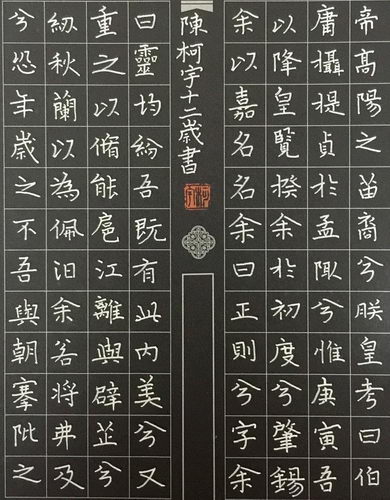 帝高陽之苗裔兮朕皇考曰伯
庸攝提貞於孟陬兮惟庚寅吾
以降皇覽揆余於初度兮肇錫
余以嘉名名余曰正則兮字余
陳柯宇十二歲書
曰靈均紛吾既有此內美兮又
重之以脩能扈江離與辟芷兮
紉秋蘭以為佩汩余若將弗及
兮恐年歲之不吾與朝搴阰之